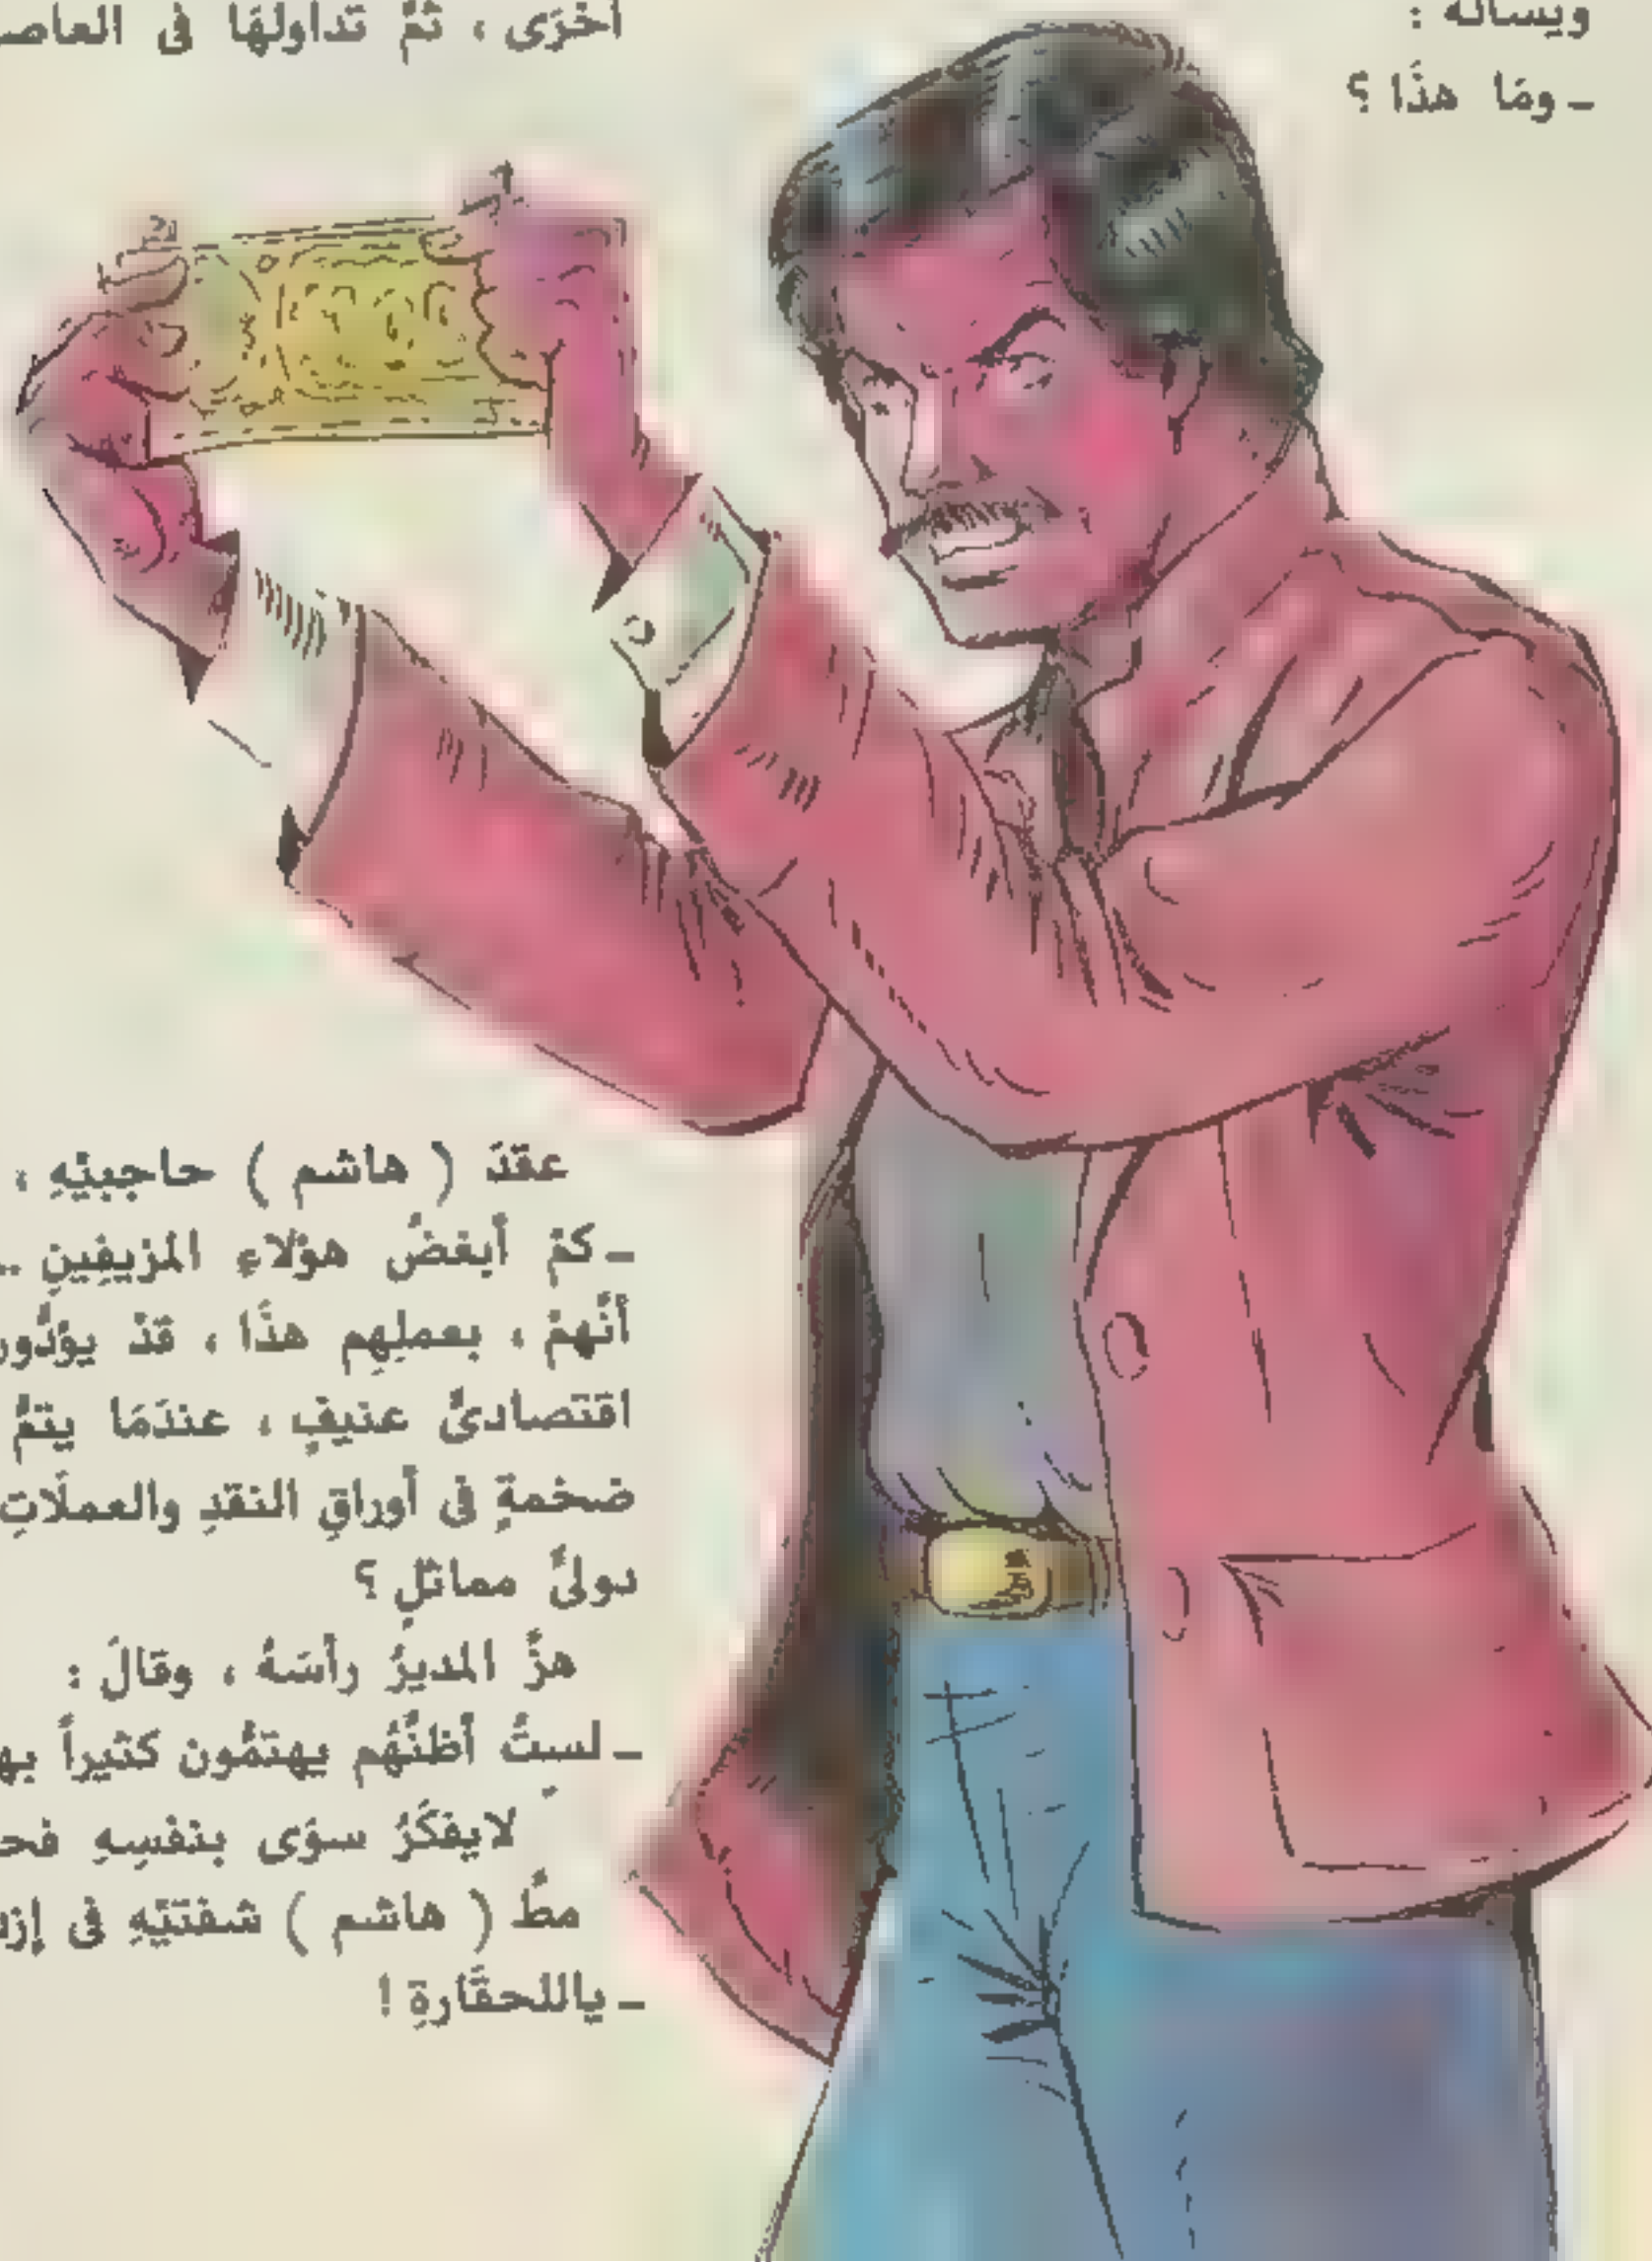 ويسأله :
ـ ومَا هذَا ؟
أخرَى ، ثمَّ تداولهَا فى العاصـ
عقدَ ( هاشم ) حاجبيْهِ ،
ـ كمْ أبغضُ هؤلاءِ المزيفِينِ ..
أنَّهمْ ، بعملِهِم هذَا ، قدْ يؤدُّور
اقتصادىٍّ عنيفٍ ، عندَمَا يتمُّ
ضخمةٍ فى أوراقِ النقدِ والعملَاتِ
دولىٌّ مماثلٍ ؟
هزَّ المديرُ رأسَهُ ، وقالَ :
ـ لستُ أظنُّهُم يهتمُّون كثيراً بهـ
لايفكَرُ سوَى بنفسِهِ فحـ
مطَّ ( هاشم ) شفتيْهِ فى إزد
ـ ياللحقَارةِ !